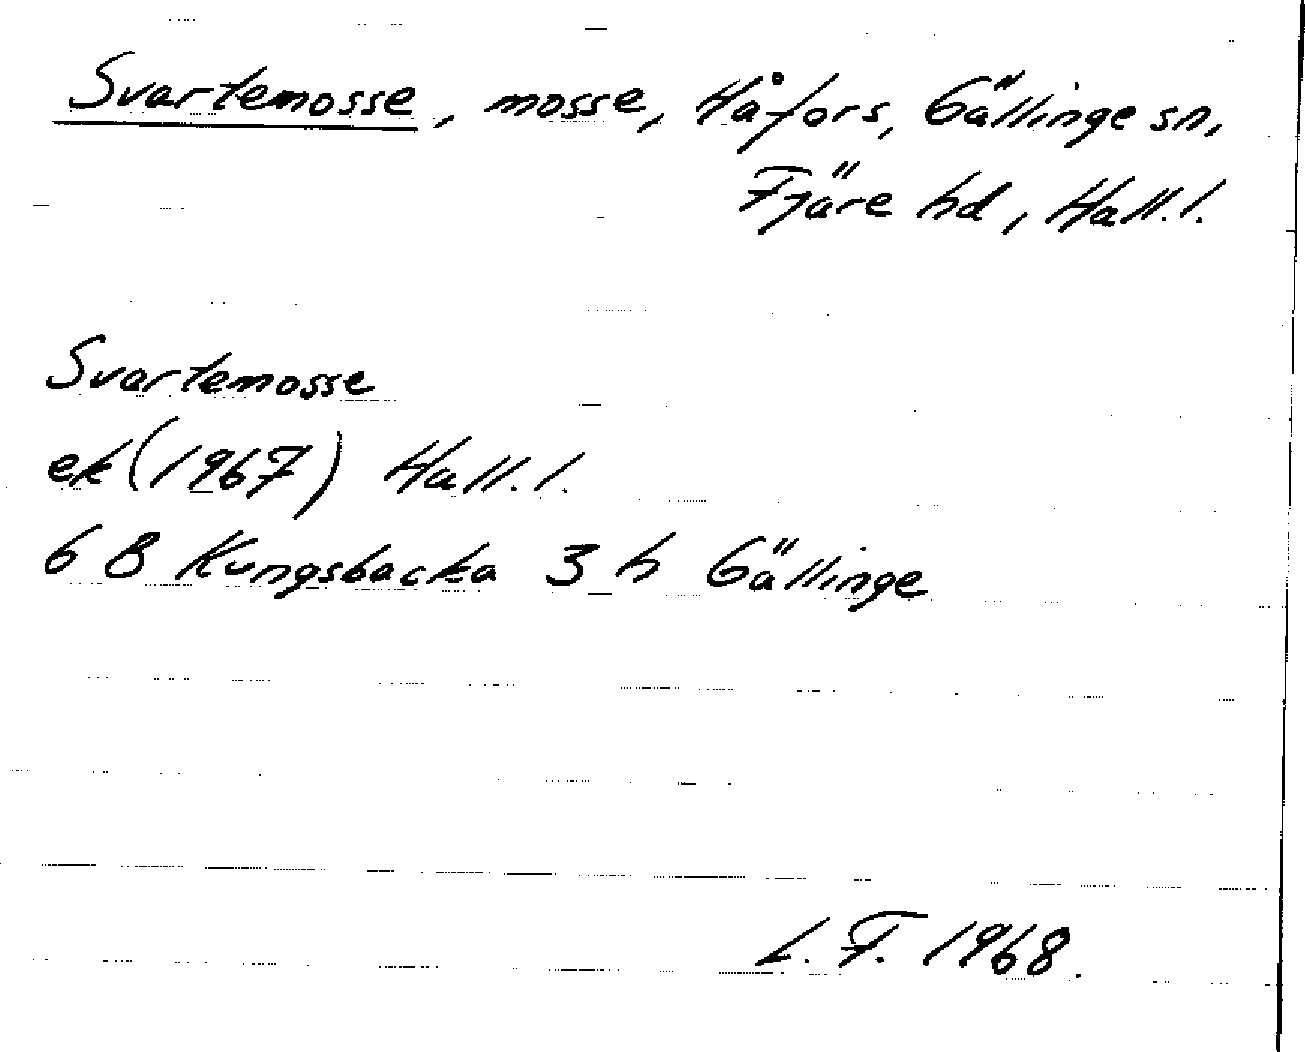 Svartemosse, mosse, Håfors, Gällinge sn,
Fjäre hd, Hall. l.
Svartemosse
ek (1967) Hall. l.
6 B Kungsbacka 3 h Gällinge
L. F. 1968.